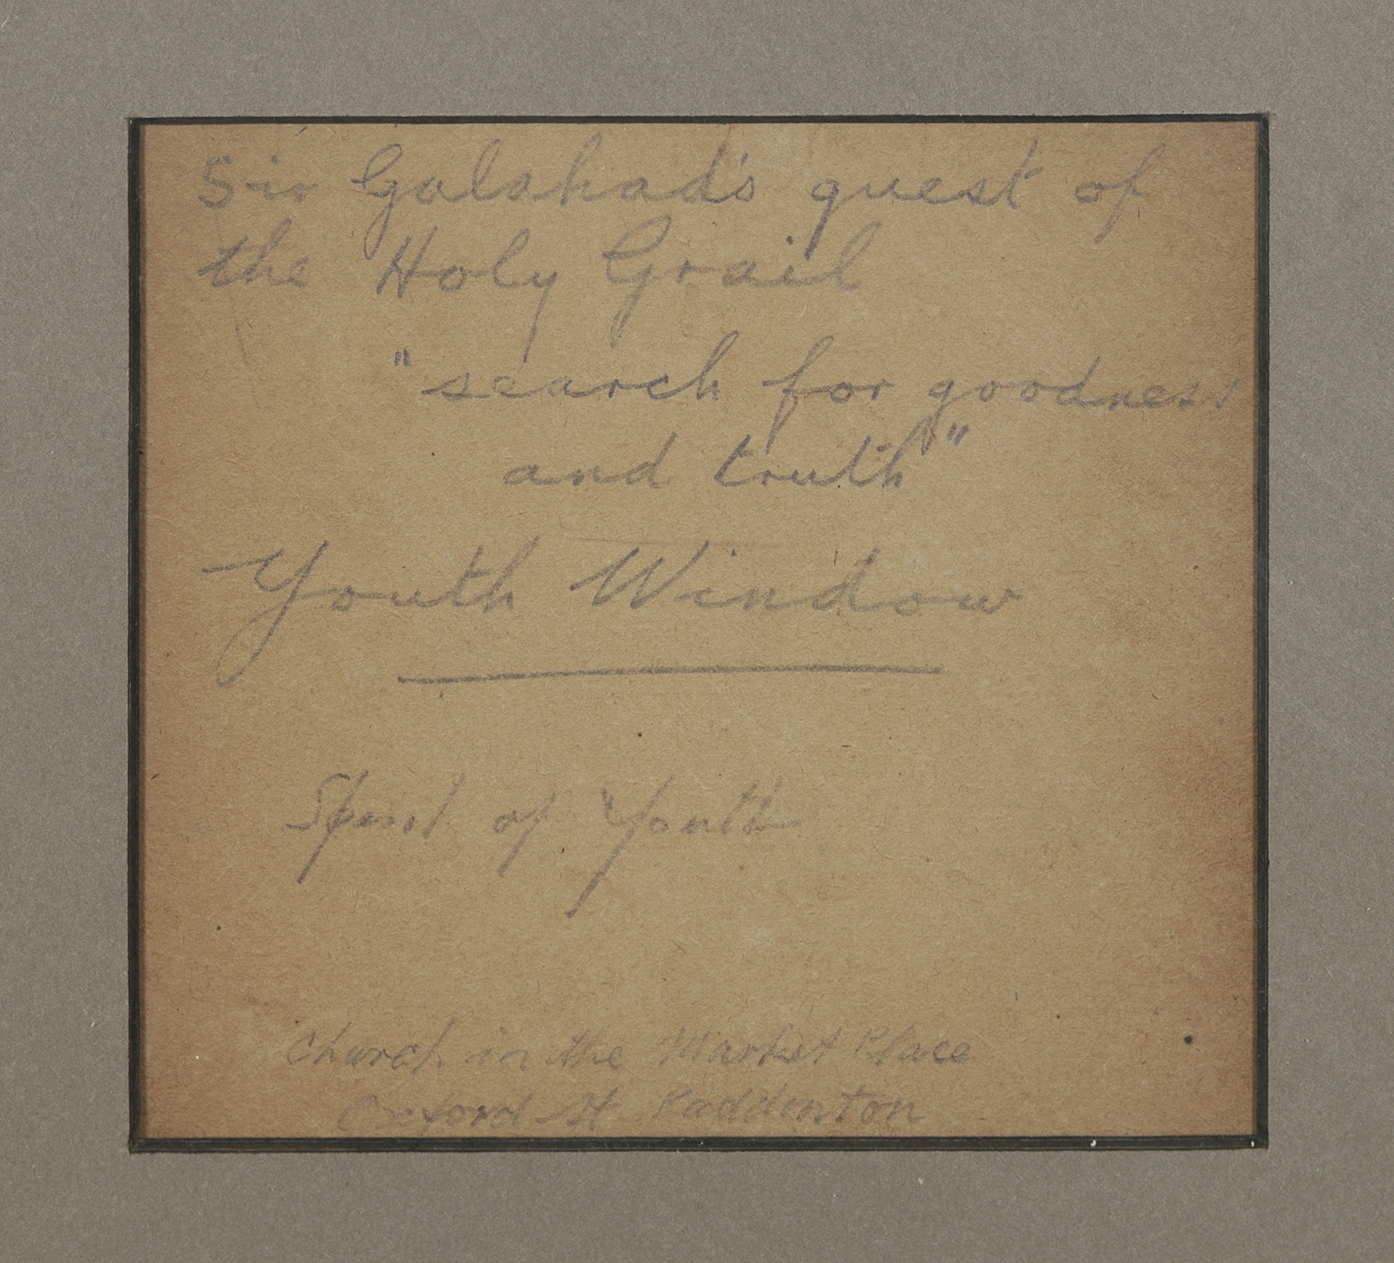 Sir Galahad's quest of
the Holy Grail
"search for goodness
and truth"
Youth Window
Spirit of Youth
Church in the Market Place
Oxford St Paddinton